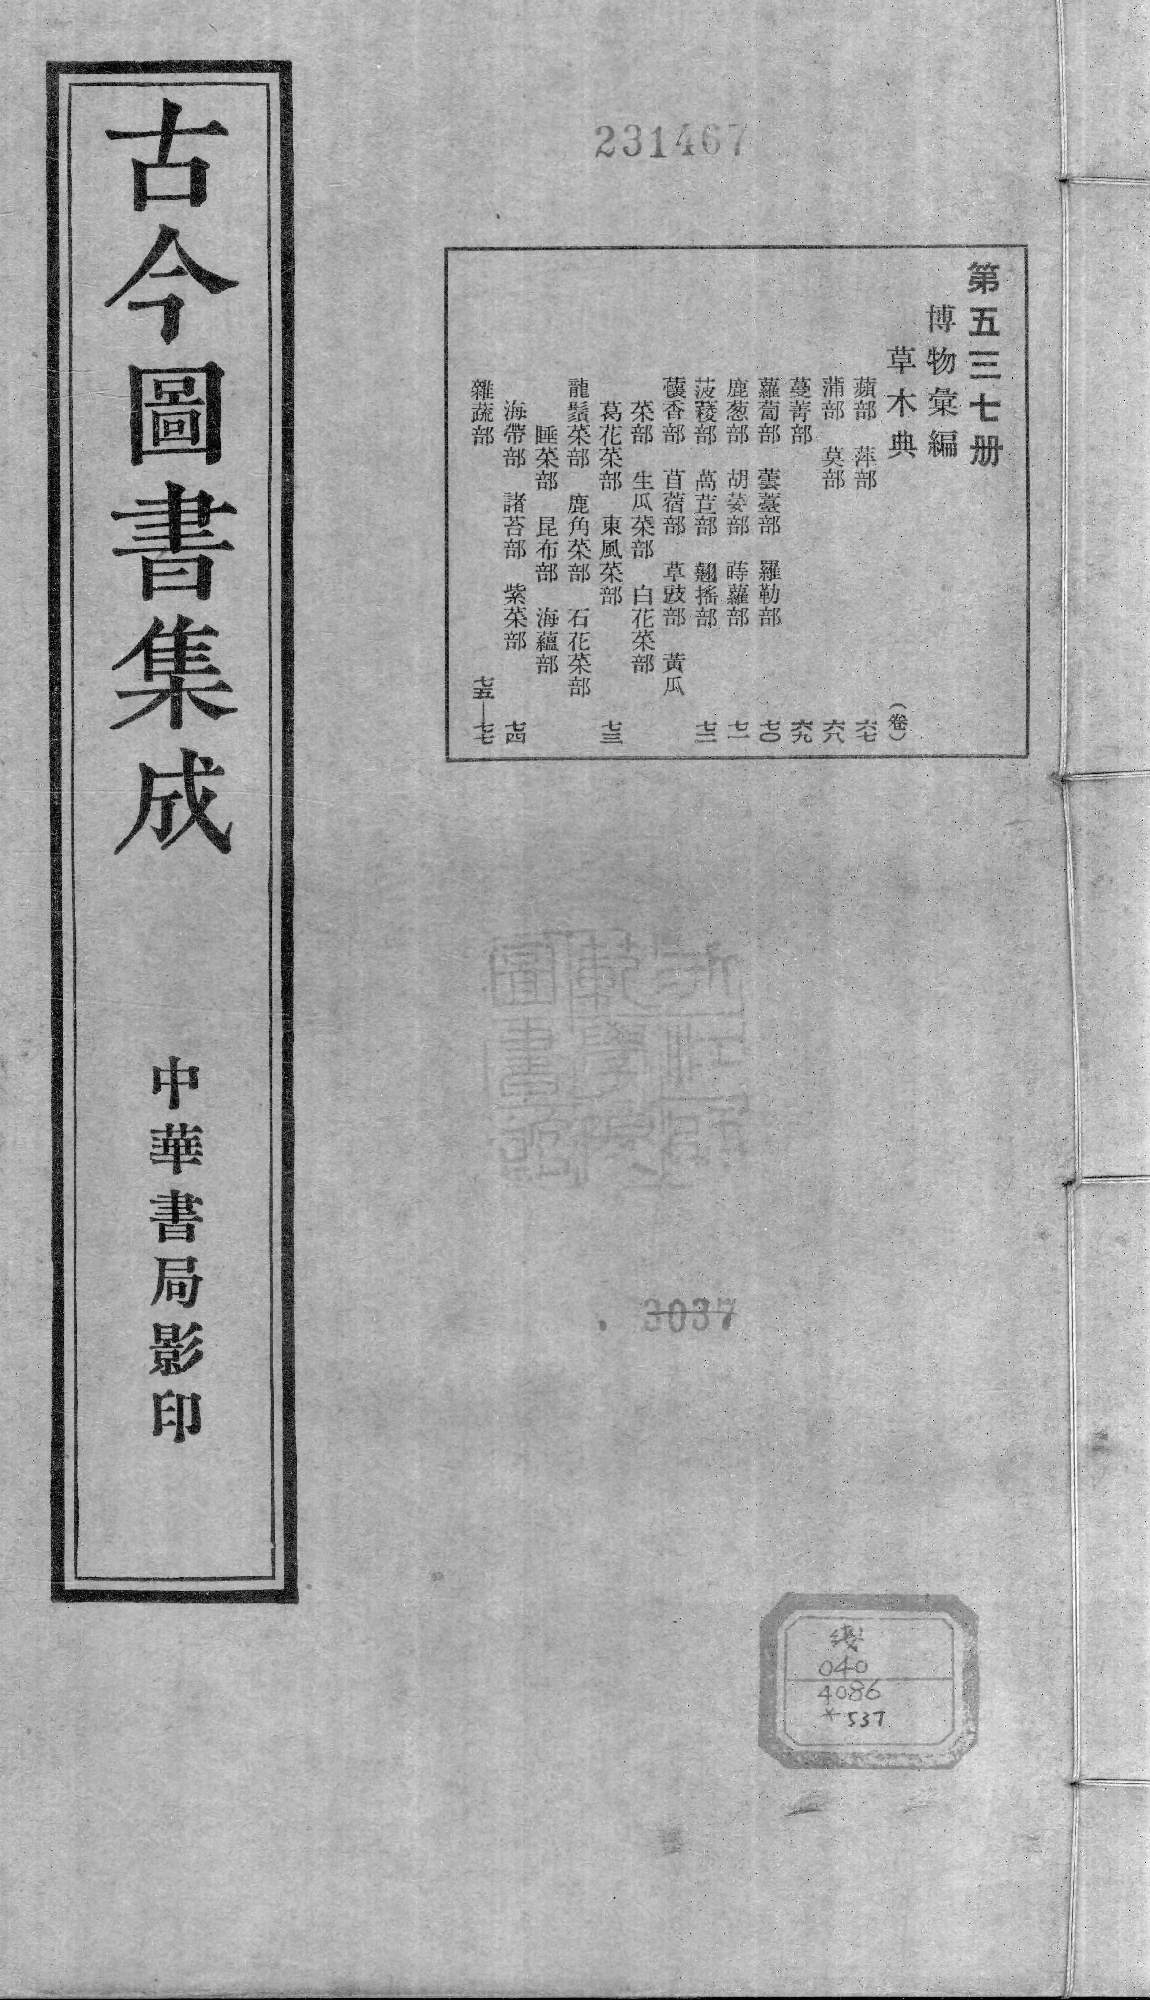 231467
第五三七册
博物彙編
草木典
(卷)
蘋部 萍部 六七
蒲部 莫部 六八
蔓菁部 六九
蘿蔔部 蕓薹部 羅勒部 七〇
鹿葱部 胡荽部 蒔蘿部 七一
菠薐部 萵苣部 翹搖部 七二
蘹香部 苜蓿部 草豉部 黃瓜
菜部 生瓜菜部 白花菜部
葛花菜部 東風菜部 七三
龍鬚菜部 鹿角菜部 石花菜部
睡菜部 昆布部 海蘊部
海帶部 諸苔部 紫菜部 七四
雜蔬部 七五—七七
古今圖書集成
中華書局影印
3037
綫
040
4086
*537